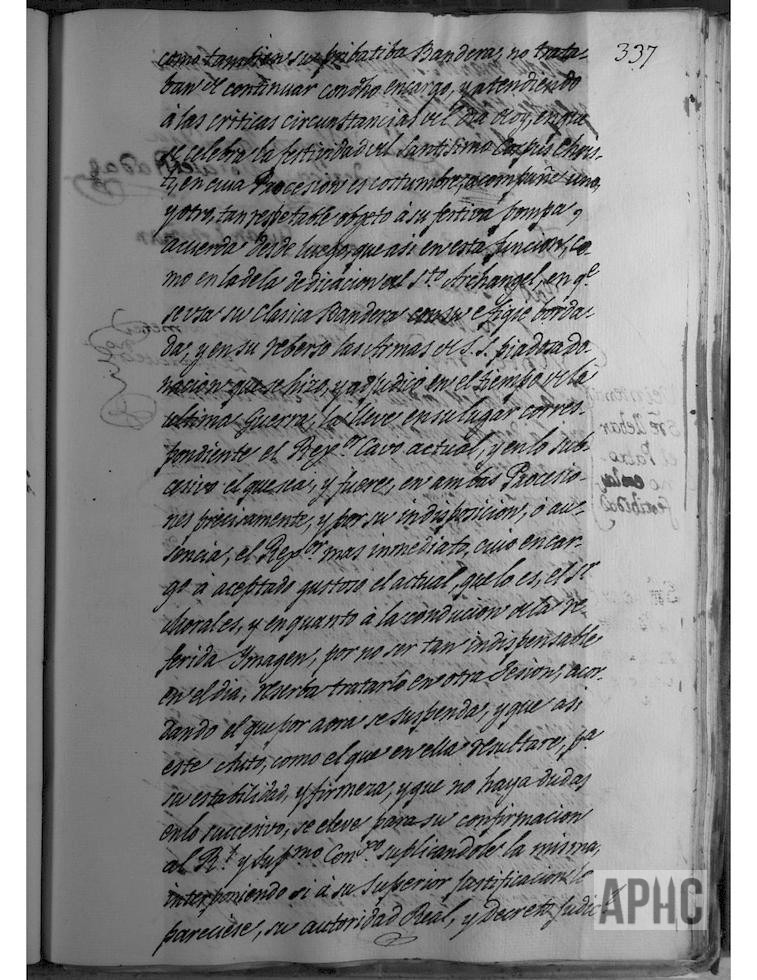 337
como tambien su pribatiba Bandera, no trata-
ban el continuar con dho encargo, y atendiendo
à las criticas circunstancias del dia de oy, en que
se celebra la festividad del Santisimo Corpus Chris-
ti, en cuia Procesion es costumbre, acompañe uno,
y otro, tan respetable objeto à su festiva pompa,
acuerda desde luego, que asi en esta funcion, co-
mo en la de la dedicacion del Sto. Archangel, en qe.
se usa su Clasica Bandera con su efigie borda-
da, y en su reberso las Armas de S. S. piadosa do-
nacion que se hizo, y adjudicó en el tiempo de la
ultima Guerra, la lleve en su lugar corres-
pondiente el Rexor. Cavo actual, y en lo sub-
cesivo el que sea, y fuere, en ambas Procesio-
nes precisamente, y por su indisposicion, ó au-
sencia, el Rexor. mas inmediato, cuio encar-
go à aceptado gustoso el actual, que lo es, el Sr.
Morales, y en quanto à la conducion de la re-
ferida Imagen, por no ser tan indispensable
en el dia, reserba tratarlo en otra Sesion, acor-
dando el que por aora se suspenda, y que asi
este Auto, como el que en ella resultare, pa.
su estabilidad, y firmeza, y que no haya dudas
en lo succesivo, se eleve para su confirmacion
al Rl. y Supmo. Conso. suplicandole la misma,
interponiendo si à su superior justificacion lo
pareciese, su autoridad Real, y Decreto Judicl.
APHC